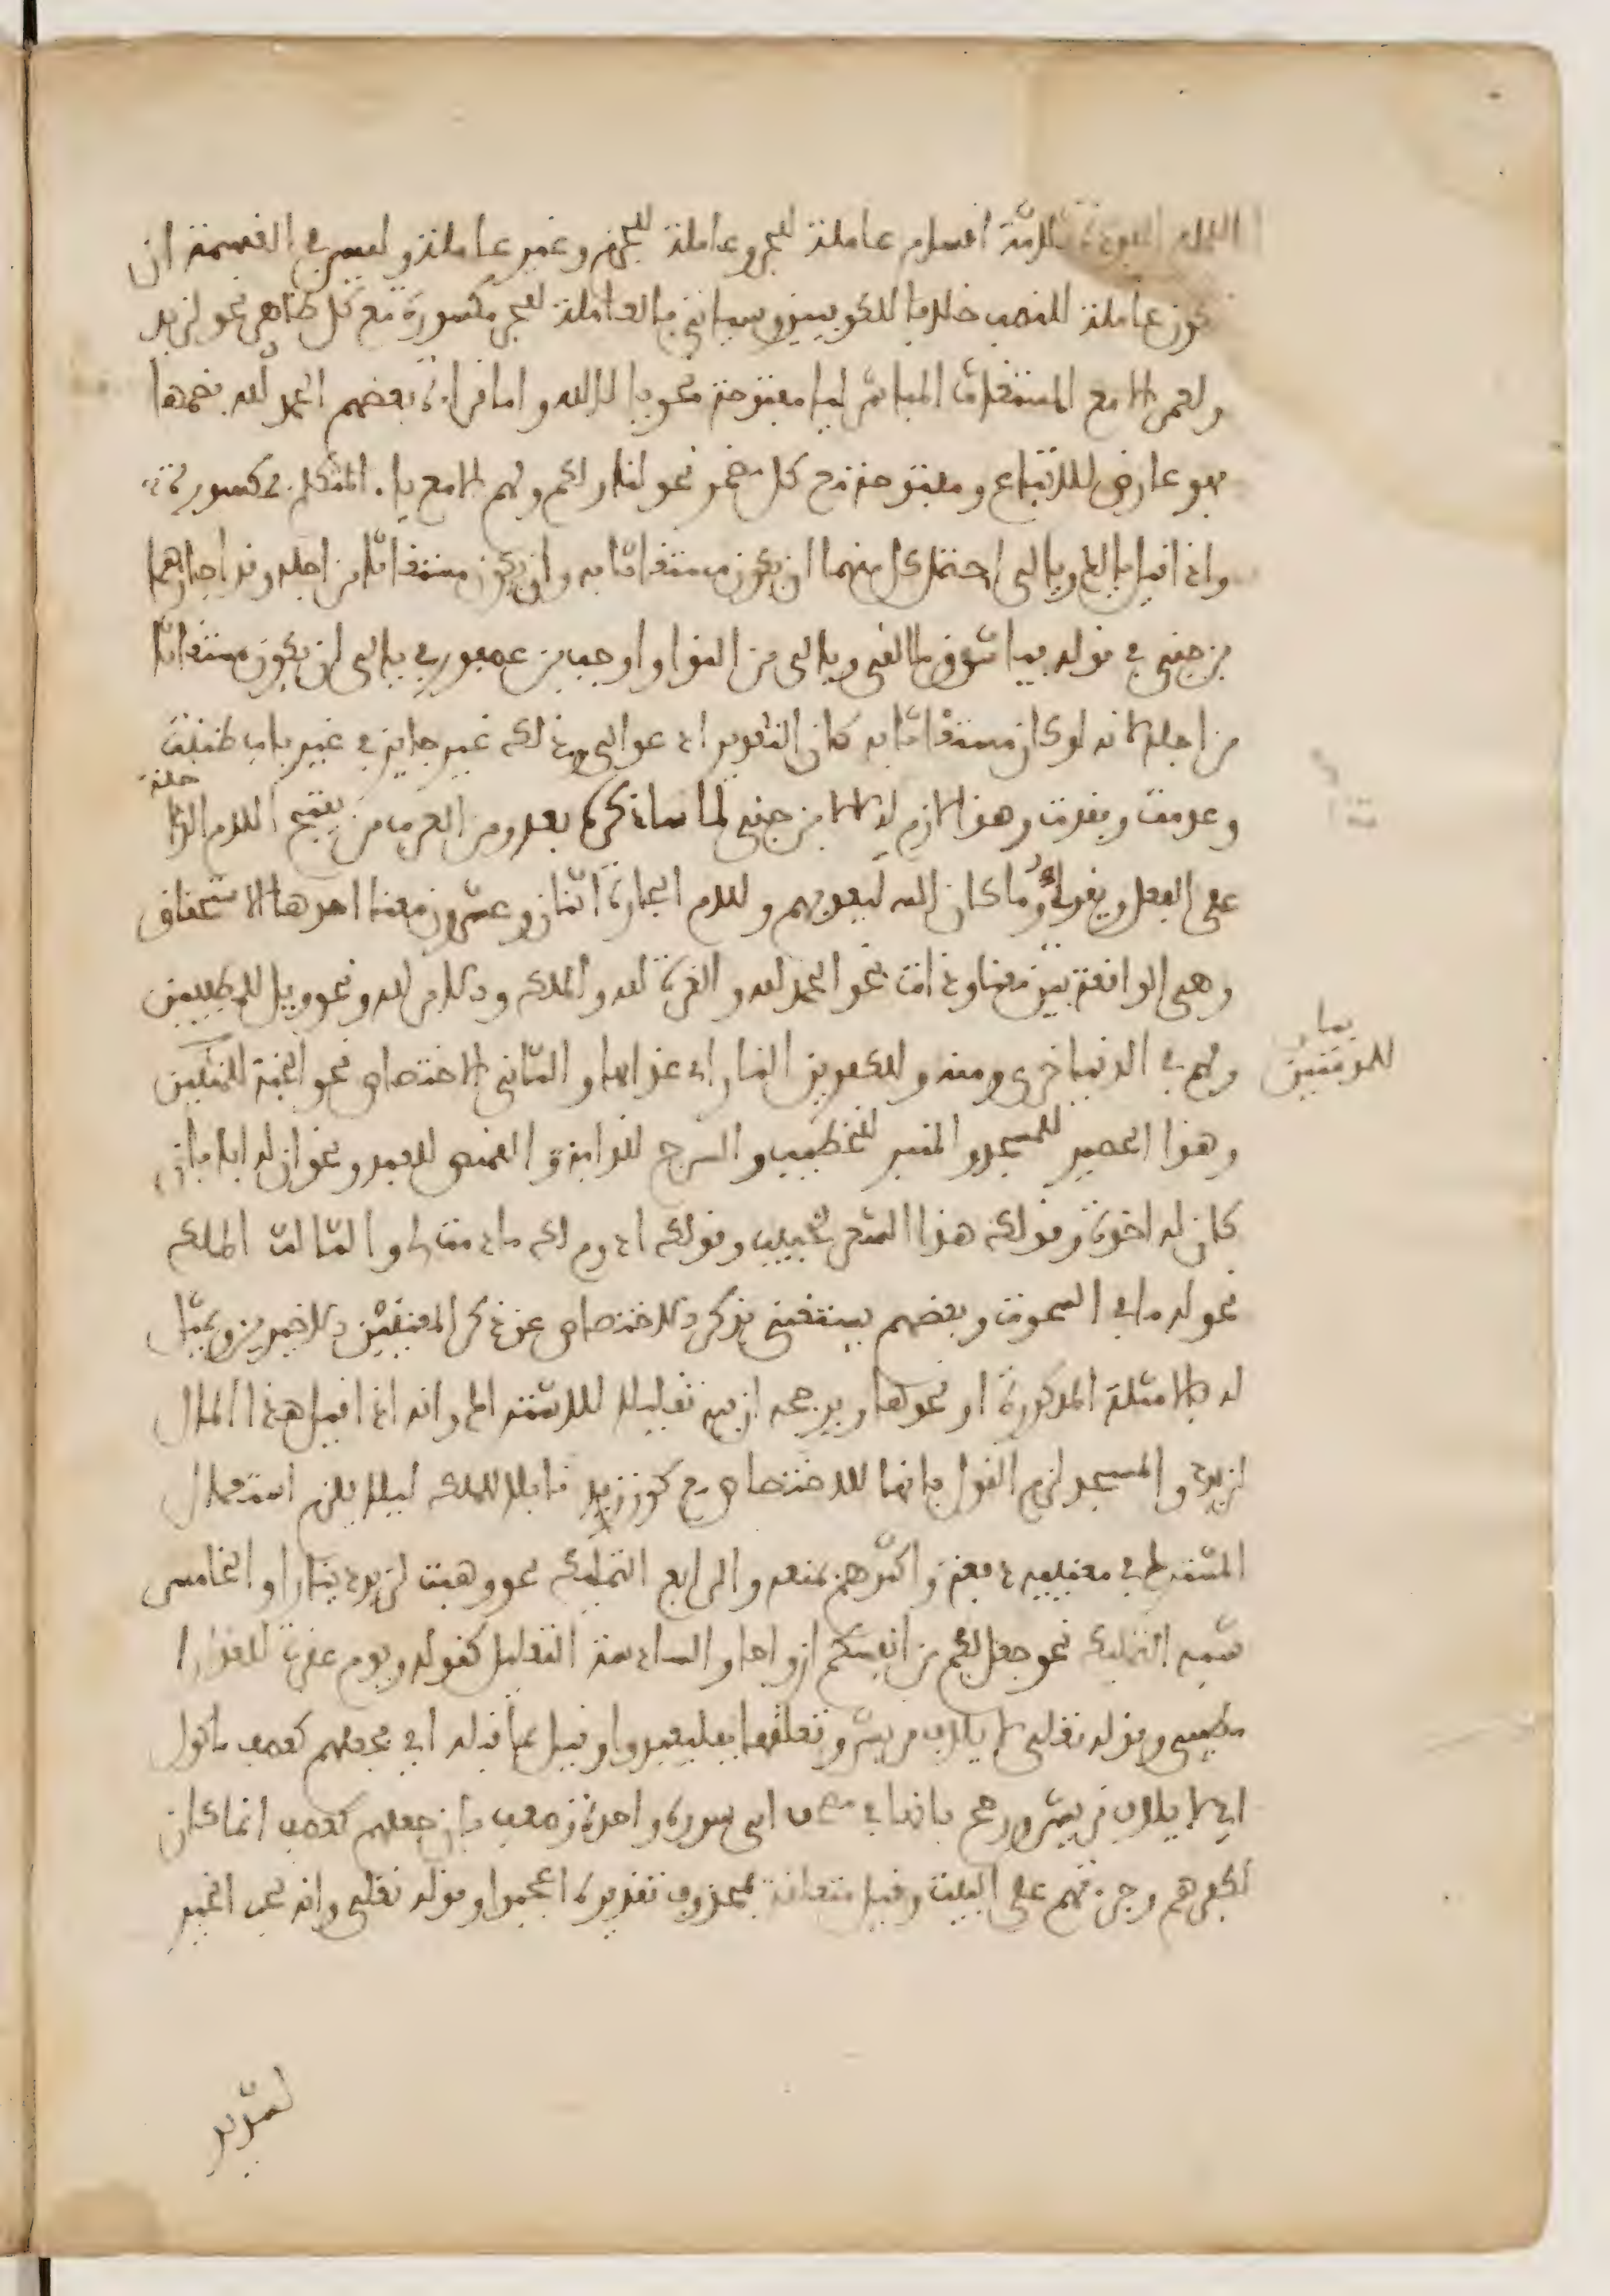 اللام المفردة ثلاثة اقسام عاملة للجر وعاملة للجزم وغير عاملة وليس في القسمة ان
تكون عاملة للنصب خلافا للكوفيين وسياتي فالعاملة للجر مكسورة مع كل ظاهر نحو لزيد
ولعمر الا مع المستغاث المباشر ليا مفتوحة نحو يا لله واما قراءة بعضهم الحمد لله بضمها
فهو عارض للاتباع ومفتوحة مع كل مضمر نحو لنا ولكم ولهم الا مع ياء المتكلم فمكسورة
واذا قيل يا لك ويا لي احتمل كل منهما ان يكون مستغاثا به وان يكون مستغاثا من اجله وقد اجازهما
بن جني في قوله فيا شوق ما ابقى ويا لي من النوا واوجب بن عصفور في يا لي ان يكون مستغاثا
من اجله لانه لو كان مستغاثا به كان التقدير ادعوا لي وذلك غير جايز في غير باب ظننت
وعدمت وفقدت وهذا لازم له لا لابن جني لما ساذكره بعد ومن العرب من يفتح اللام الداخلة
على الفعل ويقرا وما كان الله ليعذبهم وللام الجارة اثنان وعشرون معنا احدها الاستحقاق
وهي الواقعة بين معنا وذات نحو الحمد لله والعزة لله والملك والامر لله ونحو ويل للمطففين
ولهم في الدنيا خزي ومنه وللكفرين النار اي عذابها والثاني الاختصاص نحو الجنة للمتقين
وهذا الحصير للمسجد والمنبر للخطيب والسرج للدابة والقميص للعبد ونحو ان له ابا فان
كان له اخوة وقولك هذا الشعر لحبيب وقولك ادوم لك ما دمت لي والثالث الملك
نحو له ما في السموت وبعضهم يستغني بذكر الاختصاص عن ذكر المعنيين الاخيرين ويمثل
له بالامثلة المذكورة او نحوها ويرجحه ان فيه تقليلا للاشتراك وانه اذا قيل هذا المال
لزيد والمسجد لزم القول بانها للاختصاص مع كون زيد قابلا للملك ليلا يلزم استعمال
المشترك في معنييه دفعة واكثرهم يمنعه والرابع التمليك نحو وهبت لزيد دينارا والخامس
شبه التمليك نحو جعل لكم من انفسكم ازواجا والسادسة التعليل كقوله ويوم عقرت للعذارا
مطيتي وقوله تعلى لايلاف قريش وتعلقها بفليعبدوا وقيل بما قبله اي فجعلهم كعصف ماكول
اي لايلاف قريش ورجح بانهما في مصحف ابي سورة واحدة وضعف بان جعلهم كعصف انما كان
لكفرهم وجرءتهم على البيت وقيل متعلقة بمحذوف تقديره اعجبوا وقوله تعلى وانه لحب الخير
لشديد
نبار
للمومنين